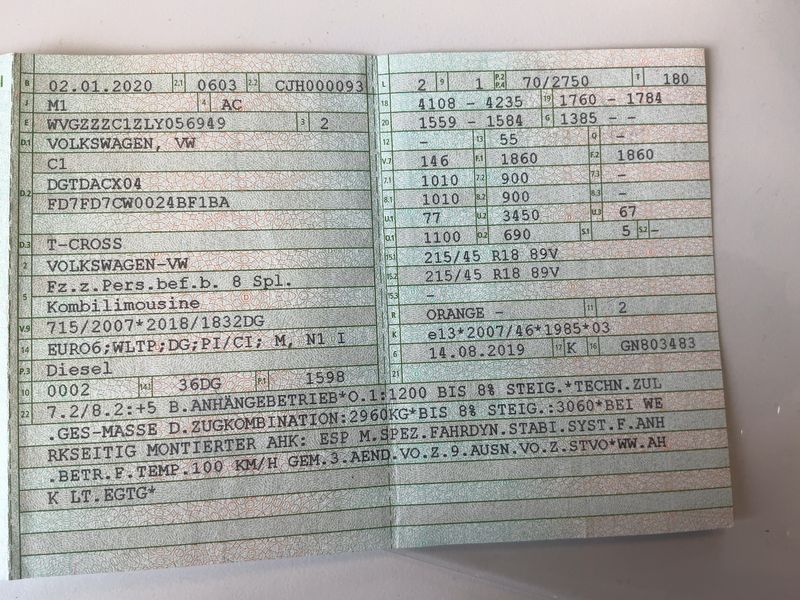 B 02.01.2020 2.1 0603 2.2 CJH000093
J M1 4 AC
E WVGZZZC1ZLY056949 3 2
D.1 VOLKSWAGEN, VW
C1
D.2 DGTDACX04
FD7FD7CW0024BF1BA
D.3 T-CROSS
2 VOLKSWAGEN-VW
5 Fz.z.Pers.bef.b. 8 Spl.
Kombilimousine
V.9 715/2007*2018/1832DG
14 EURO6;WLTP;DG;PI/CI; M, N1 I
P.3 Diesel
10 0002 14.1 36DG P.1 1598
L 2 9 1 P.2 P.4 70/2750 T 180
18 4108 - 4235 19 1760 - 1784
20 1559 - 1584 G 1385 - -
12 - 13 55 Q -
V.7 146 F.1 1860 F.2 1860
7.1 1010 7.2 900 7.3 -
8.1 1010 8.2 900 8.3 -
U.1 77 U.2 3450 U.3 67
O.1 1100 O.2 690 S.1 5 S.2 -
15.1 215/45 R18 89V
15.2 215/45 R18 89V
15.3 -
R ORANGE - 11 2
K e13*2007/46*1985*03
6 14.08.2019 17 K 16 GN803483
21
22 7.2/8.2:+5 B.ANHÄNGEBETRIEB*O.1:1200 BIS 8% STEIG.*TECHN.ZUL
.GES-MASSE D.ZUGKOMBINATION:2960KG*BIS 8% STEIG.:3060*BEI WE
RKSEITIG MONTIERTER AHK: ESP M.SPEZ.FAHRDYN.STABI.SYST.F.ANH
.BETR.F.TEMP.100 KM/H GEM.3.AEND.VO.Z.9.AUSN.VO.Z.STVO*WW.AH
K LT.EGTG*